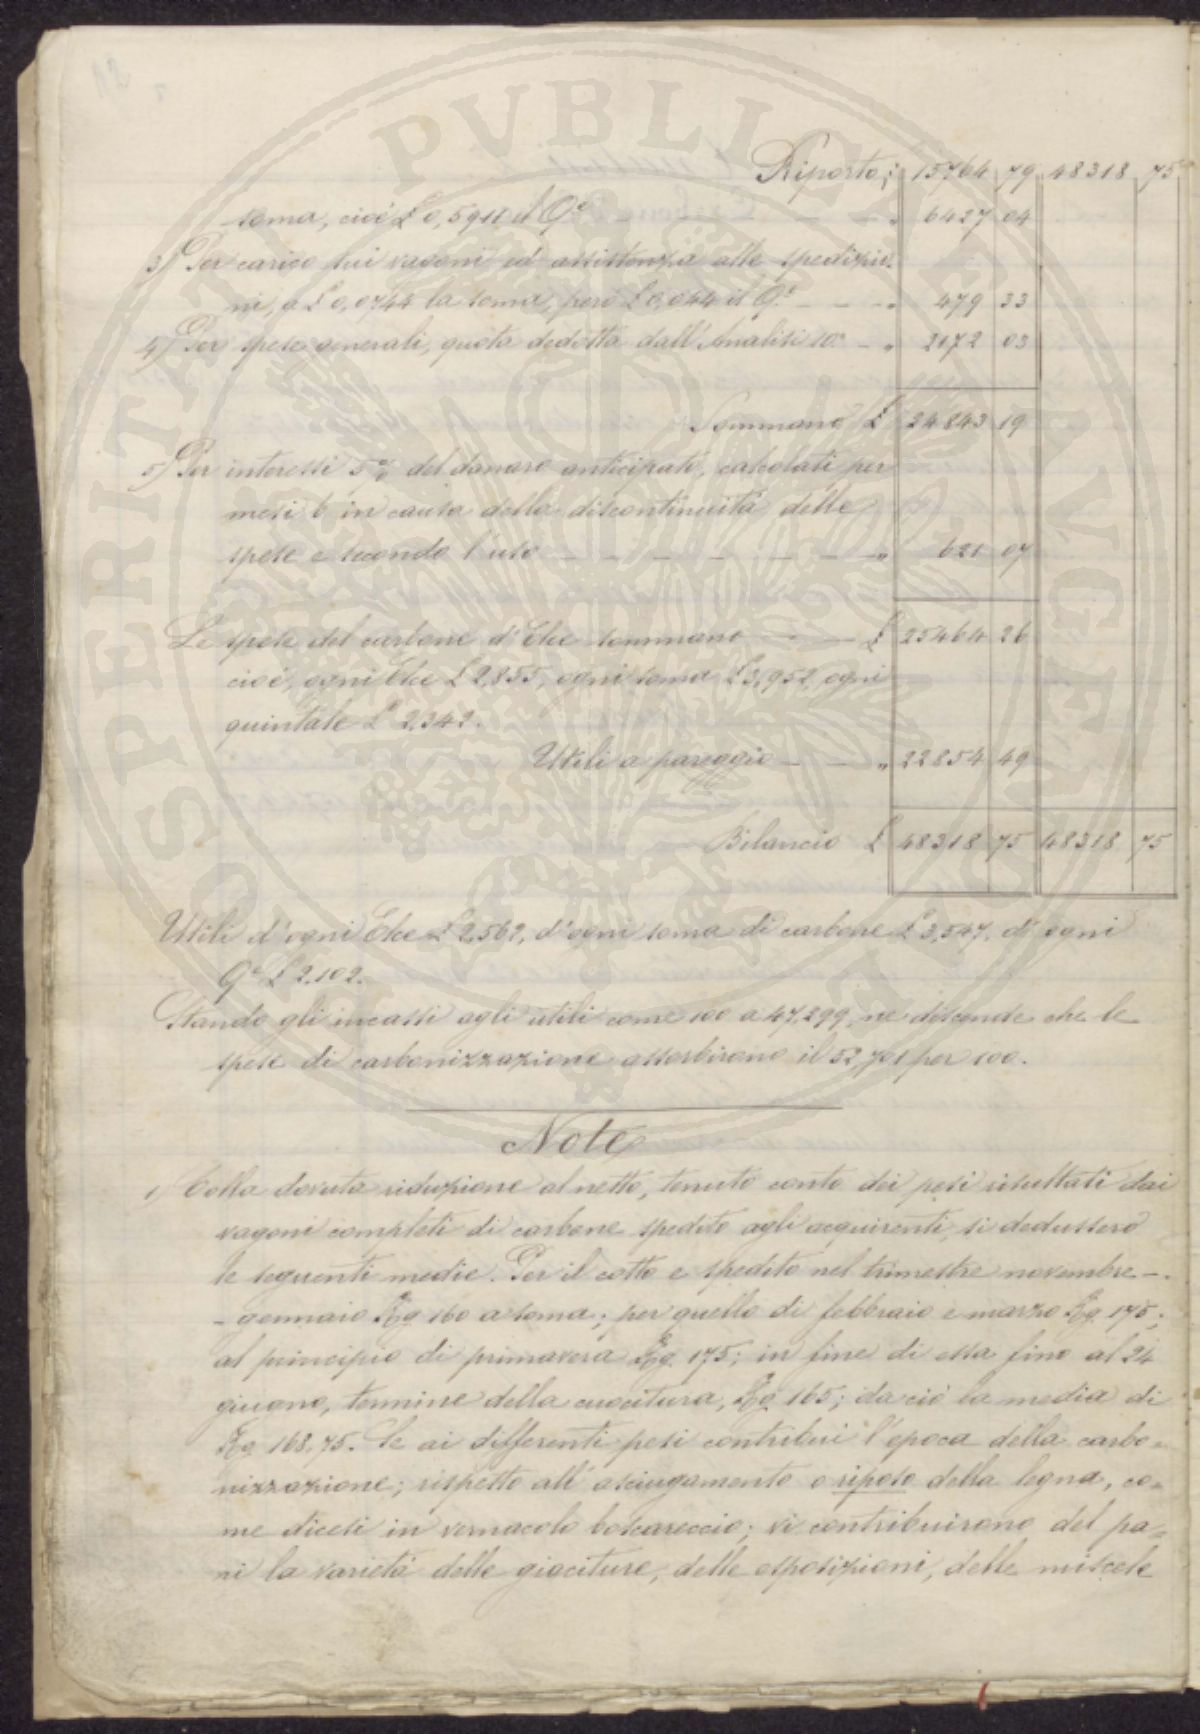 Riporto; 15764 79 48318 75
soma, cioè £ 0,5911 il Q.e „ 6427 04
3) Per carico sui vagoni ed assistenza alle spedizio-
ni, a £ 0,0744 la soma, però £ 0,044 il Q.e — — „ 479 33
4) Per spese generali, quota dedotta dall'Analisi 10.a — „ 2172 03
Sommano £ 24843 19
5) Per interessi 5% del danaro anticipato, calcolati per
mesi 6 in causa della discontinuità delle
spese e secondo l'uso — — — — — — „ 621 07
Le spese del carbone d'Elce sommano — — £ 25464 26
cioè, ogni Elce £ 2,855, ogni soma £ 3,952, ogni
quintale £ 2,342.
Utili a pareggio — — „ 22854 49
Bilancio £ 48318 75 48318 75
Utili d'ogni Elce £ 2,562, d'ogni soma di carbone £ 3,547, d'ogni
Q.e £ 2.102.
Stando gli incassi agli utili come 100 a 47,299, ne discende che le
spese di carbonizzazione assorbirono il 52,701 per 100.
Note
1) Colla dovuta riduzione al netto, tenuto conto dei pesi risultati dai
vagoni completi di carbone spedito agli acquirenti, si dedussero
le seguenti medie. Per il cotto e spedito nel trimestre novembre -
- gennaio Kg 160 a soma; per quello di febbraio e marzo Kg. 175;
al principio di primavera Kg. 175; in fine di essa fino al 24
giugno, termine della cuocitura, Kg 165; da ciò la media di
Kg 168,75. Se ai differenti pesi contribuì l'epoca della carbo-
nizzazione; rispetto all'asciugamento o riposo della legna, co-
me dicesi in vernacolo boscareccio; vi contribuirono del pa-
ri la varietà delle giaciture, delle esposizioni, delle miscele
PUBLICAE
PROSPERITATI
AUGENDAE